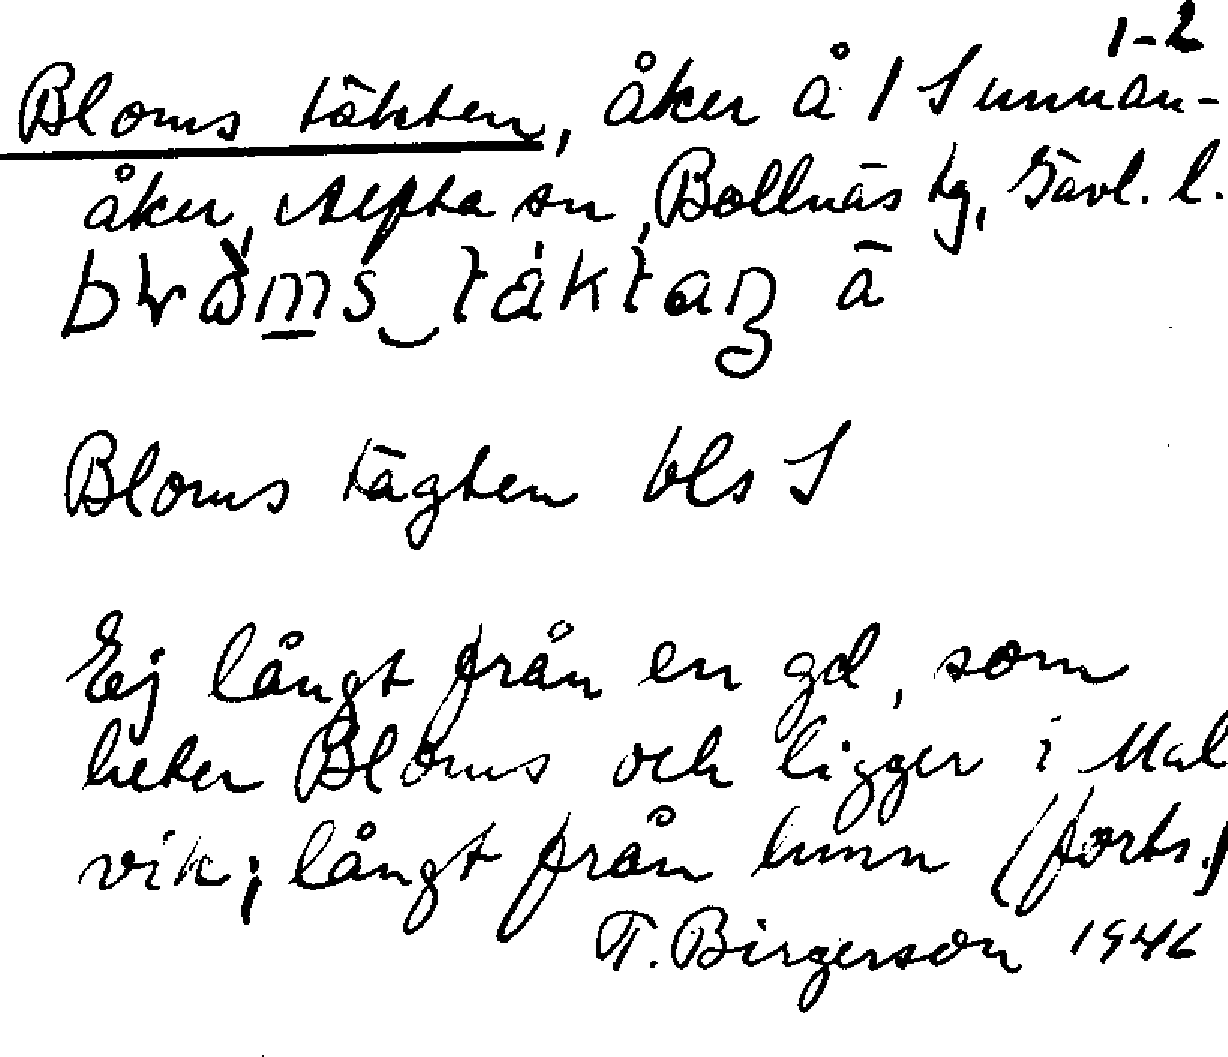 1-2
Bloms täkten, åker å 1 Sunnan-
åker, Alfta sn, Bollnäs tg, Gävl. l.
Bloms tägten bls S
Ej långt från en gd, som
heter Bloms och ligger i Mal
vik; långt från hmn (forts.)
T. Birgerson 1946